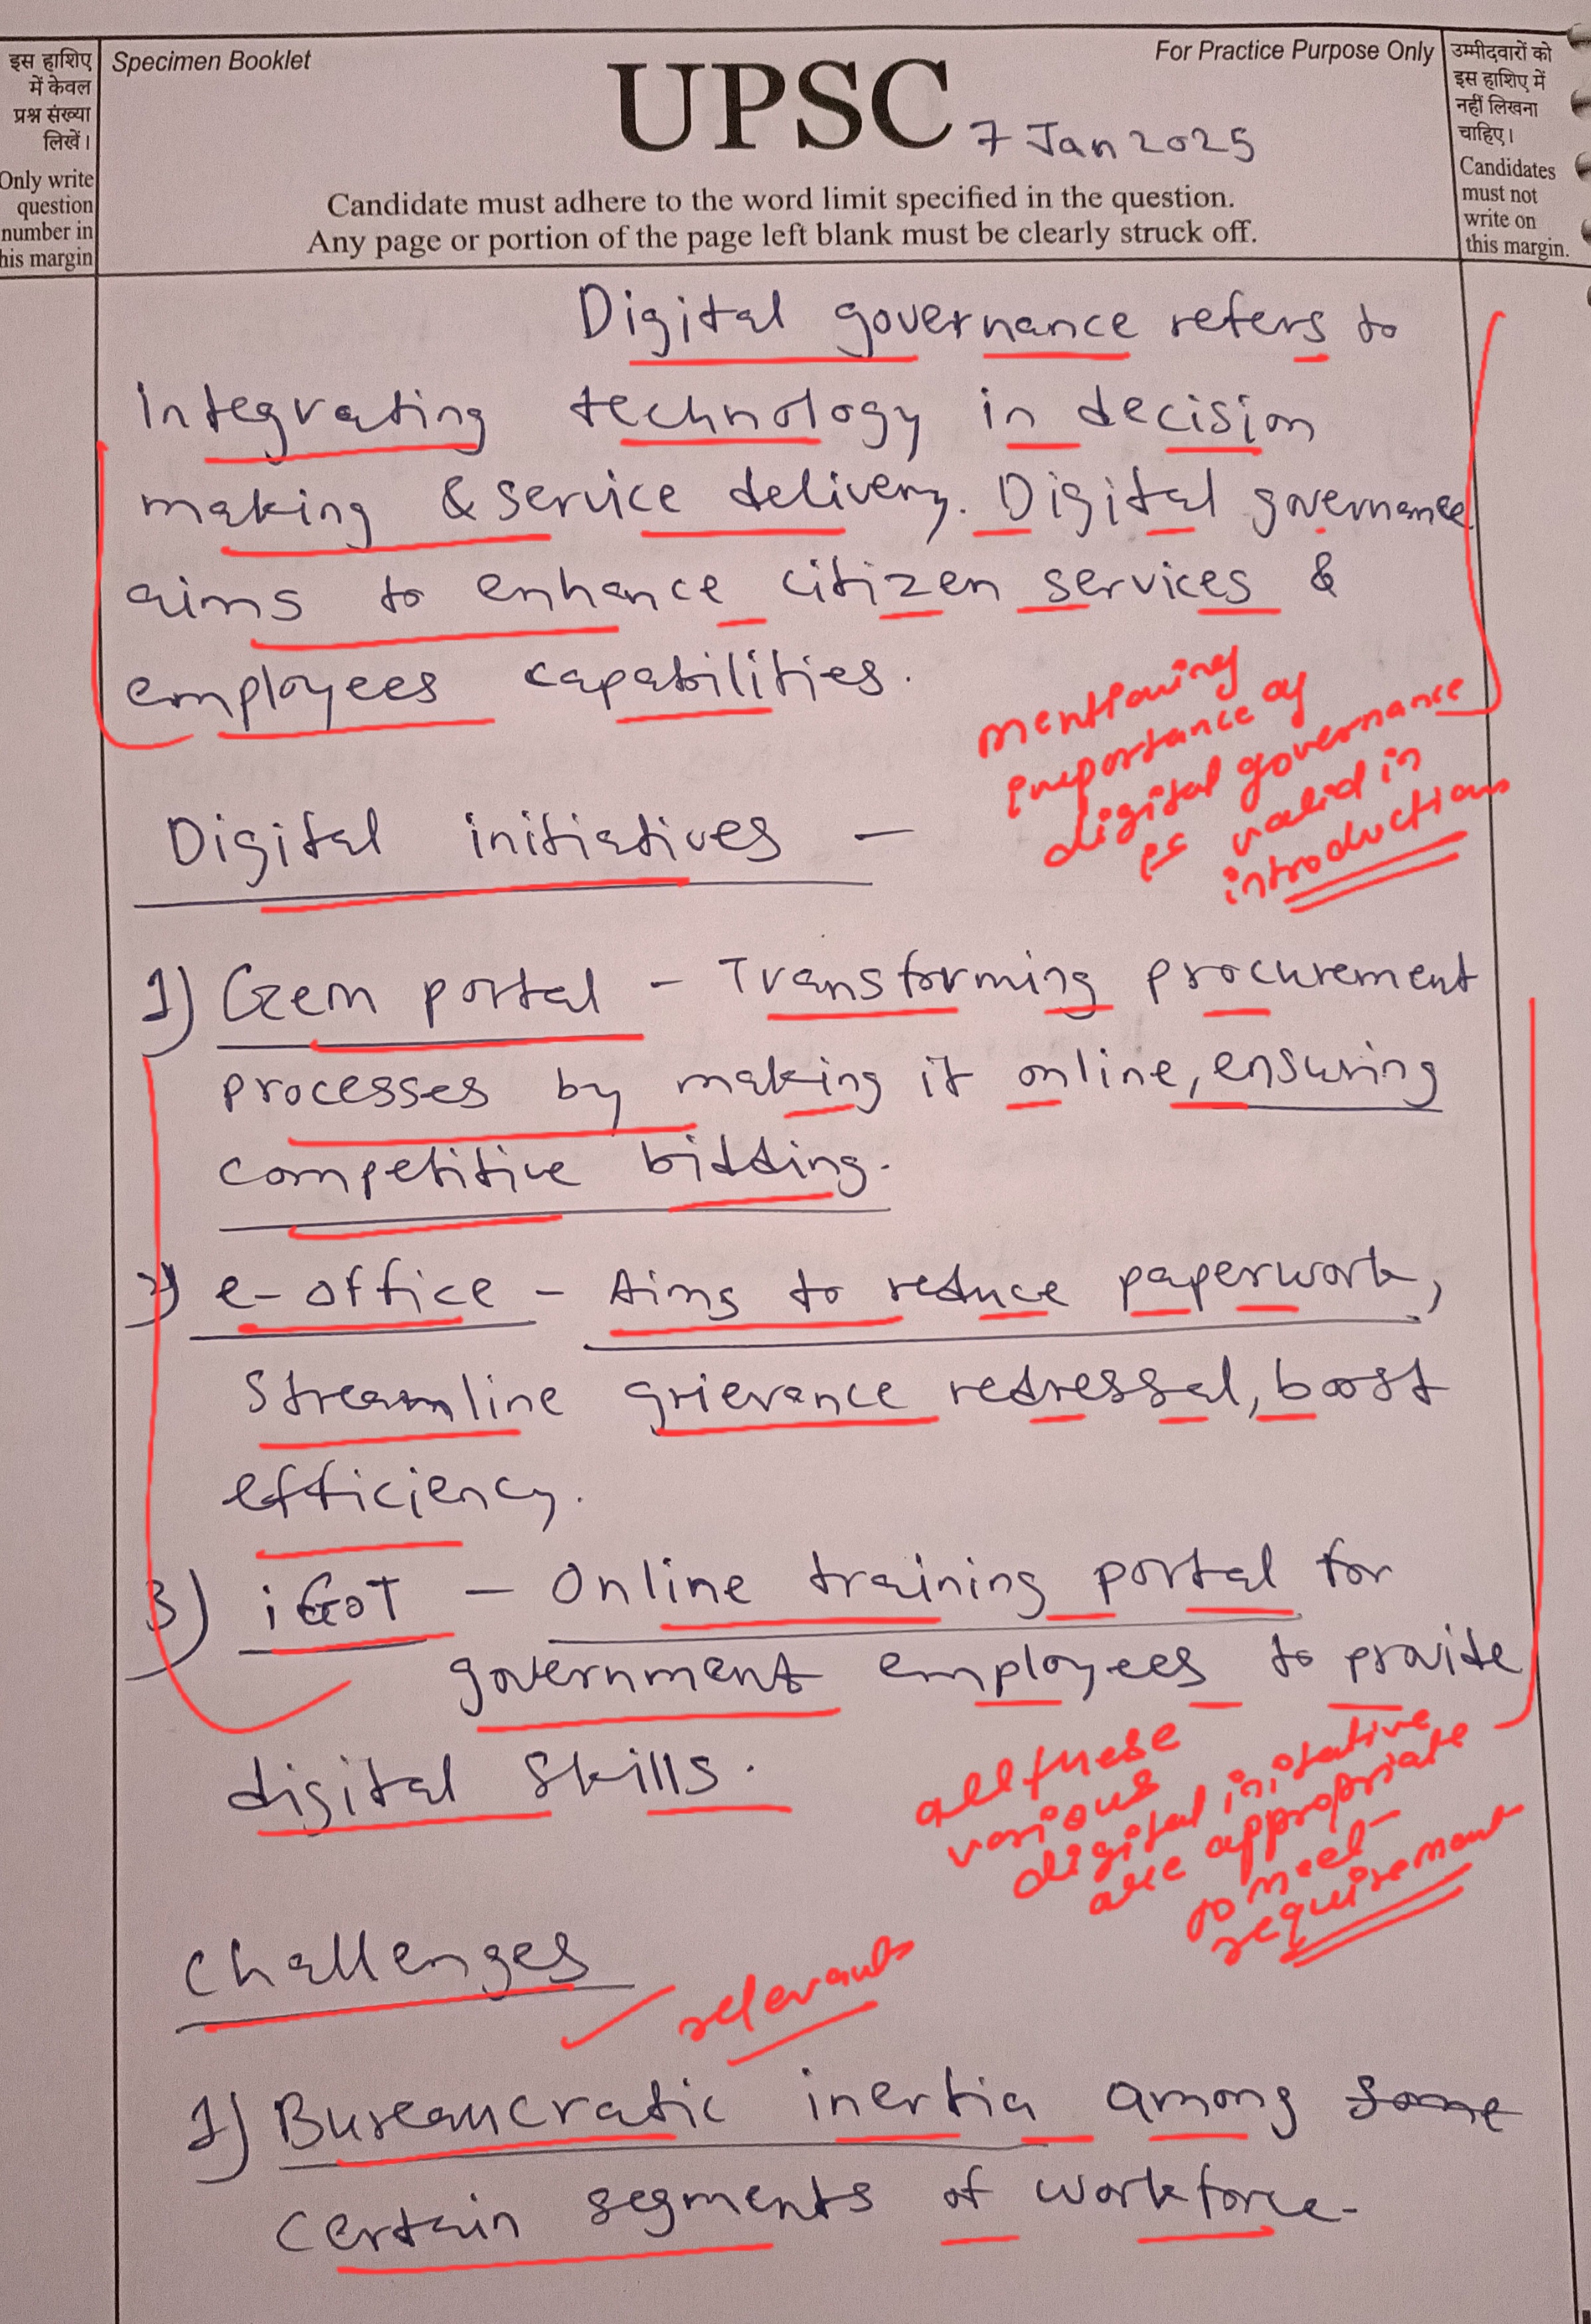 इस हाशिए
में केवल
प्रश्न संख्या
लिखें।
Only write
question
number in
his margin
Specimen Booklet
For Practice Purpose Only
UPSC
7 Jan 2025
Candidate must adhere to the word limit specified in the question.
Any page or portion of the page left blank must be clearly struck off.
उम्मीदवारों को
इस हाशिए में
नहीं लिखना
चाहिए।
Candidates
must not
write on
this margin.
Digital governance refers to
Integrating technology in decision
making & service delivery. Digital governance
aims to enhance citizen services &
employees capabilities.
mentioning
importance of
digital governance
is valid in
introduction
Digital initiatives –
1) Gem portal - Transforming procurement
processes by making it online, ensuring
competitive bidding.
2) e-office - Aims to reduce paperwork,
Streamline grievance redressal, boost
efficiency.
3) iGoT – Online training portal for
government employees to provide
digital skills.
all these
various
digital initiative
are appropriate
to meet
requirement
Challenges
relevant
1) Bureaucratic inertia among some
certain segments of workforce.